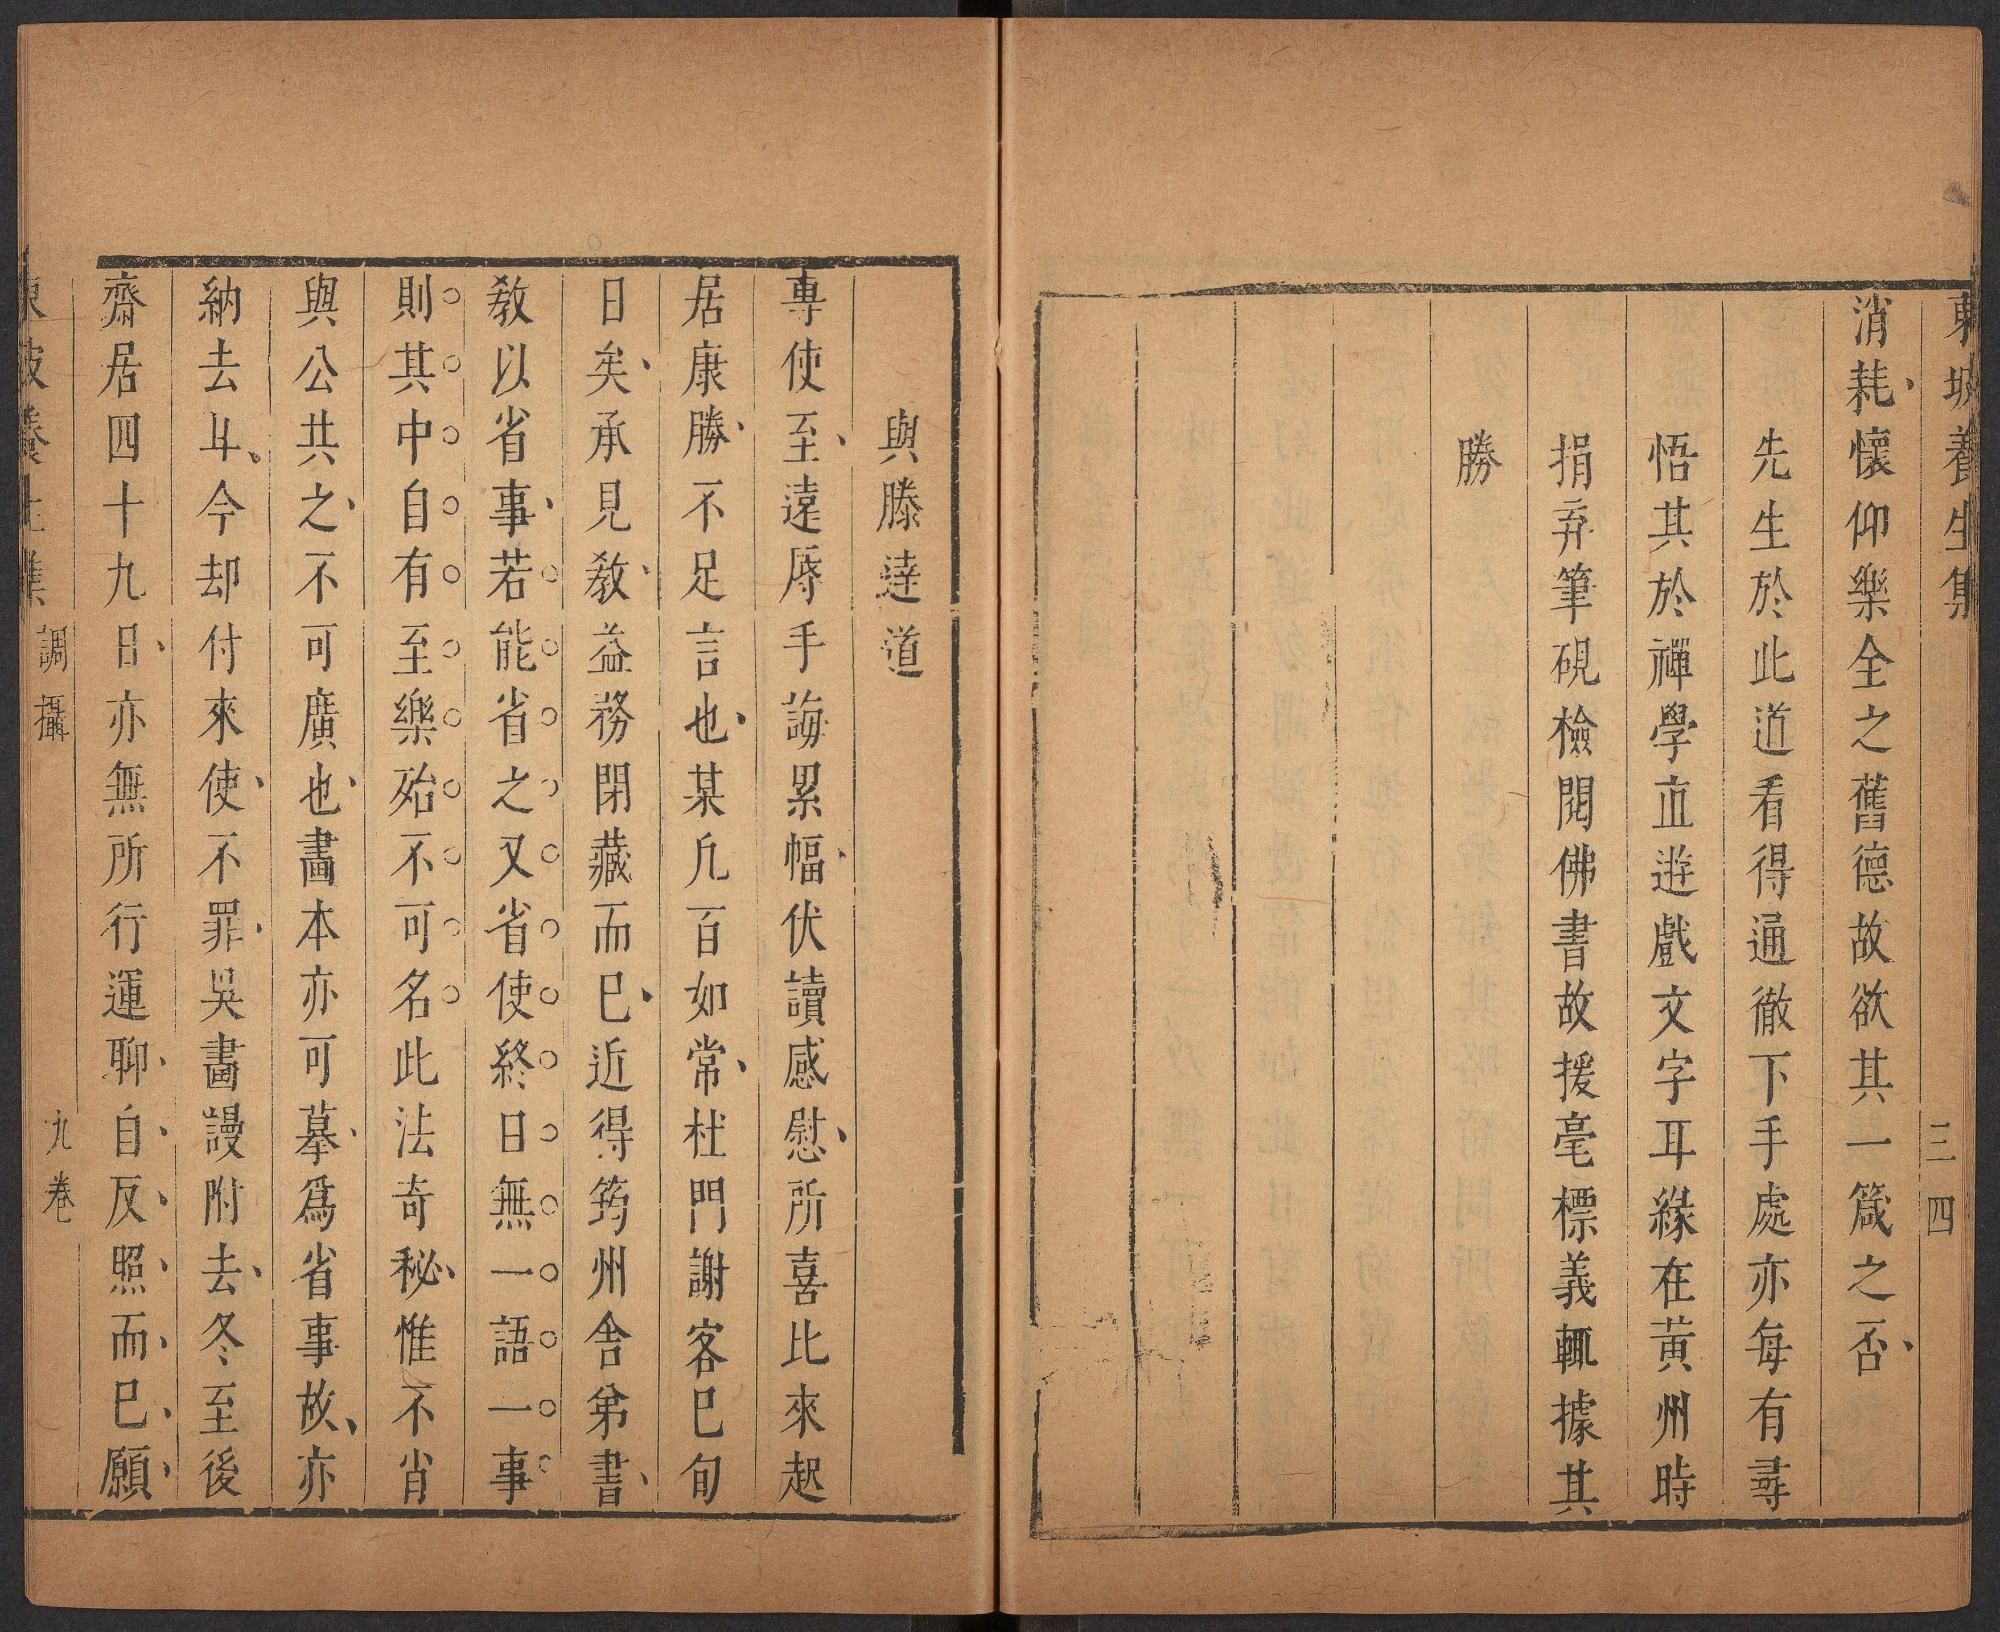 東坡養生集
三四
消耗懷仰樂全之舊德故欲其一箴之否
先生於此道看得通徹下手處亦每有尋
悟其於禪學直遊戲文字耳緣在黃州時
捐弃筆硯檢閱佛書故援毫標義輒據其
勝
與滕達道
專使至遠辱手誨累幅伏讀感慰所喜比來起
居康勝不足言也某凡百如常杜門謝客已旬
日矣承見教益務閉藏而已近得筠州舍弟書
教以省事若能省之又省使終日無一語一事
則其中自有至樂殆不可名此法奇秘惟不肖
與公共之不可廣也畫本亦可摹爲省事故亦
納去耳今却付來使不罪吳畫謾附去冬至後
齋居四十九日亦無所行運聊自反照而已願
東坡養生集 調攝 九卷